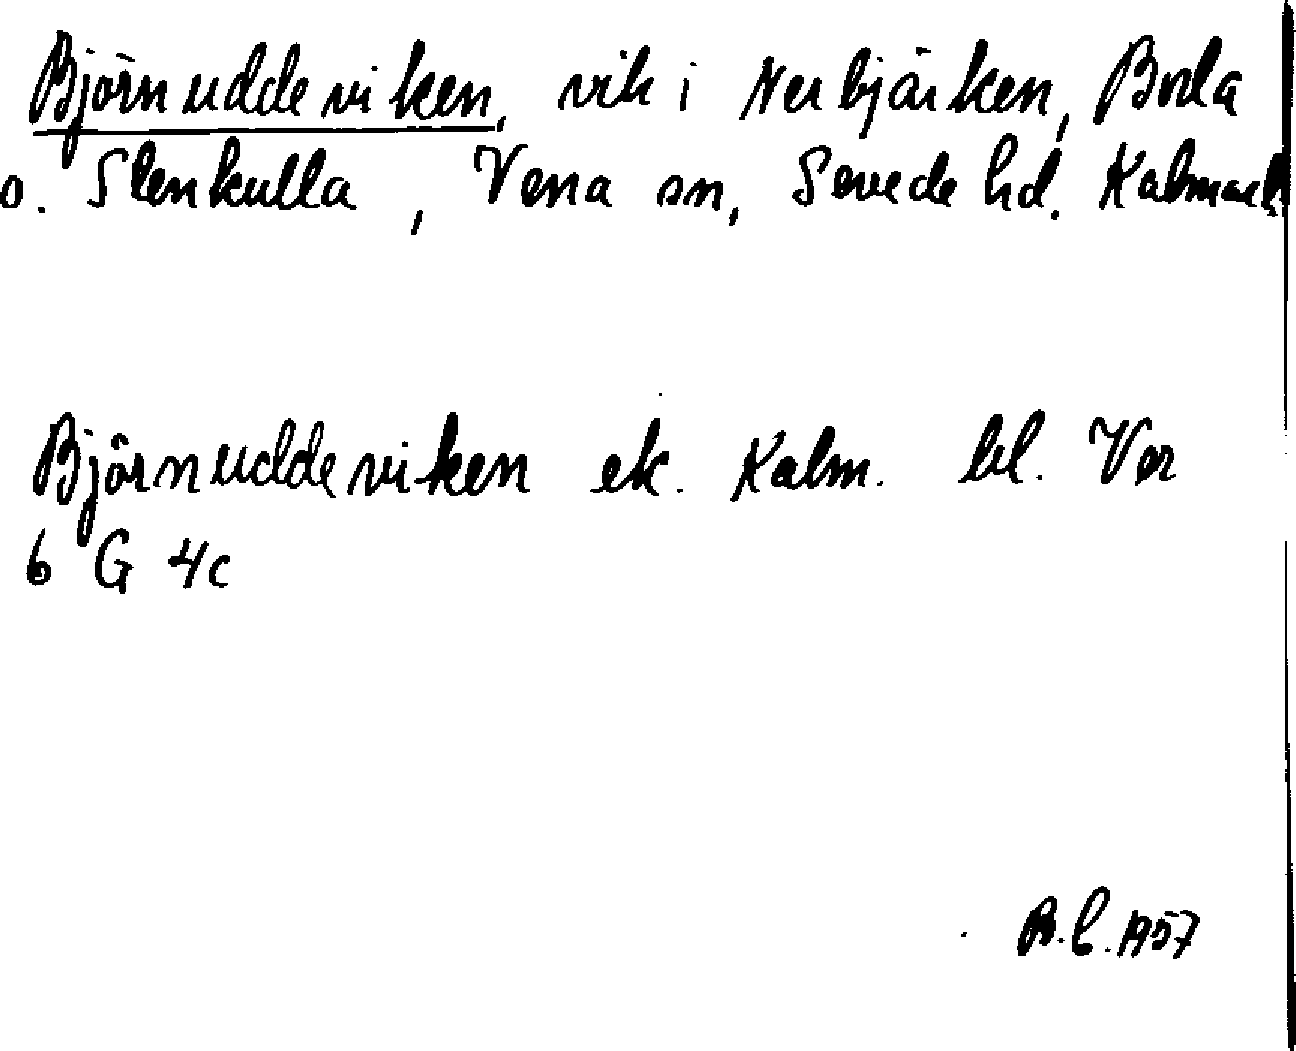 Björnuddeviken, vik i Nerbjärken, Boda
o. Stenkulla, Vena sn, Sevede hd. Kalmar l.
Björnuddeviken ek. Kalm. bl. Ver
6 G 4c
1957